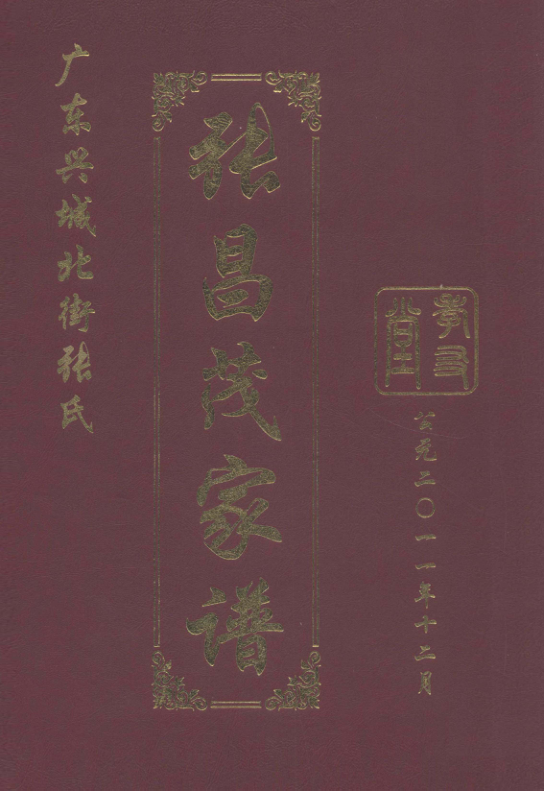 广东兴城北街张氏
张昌茂家谱
孝友堂
公元二〇一一年十二月